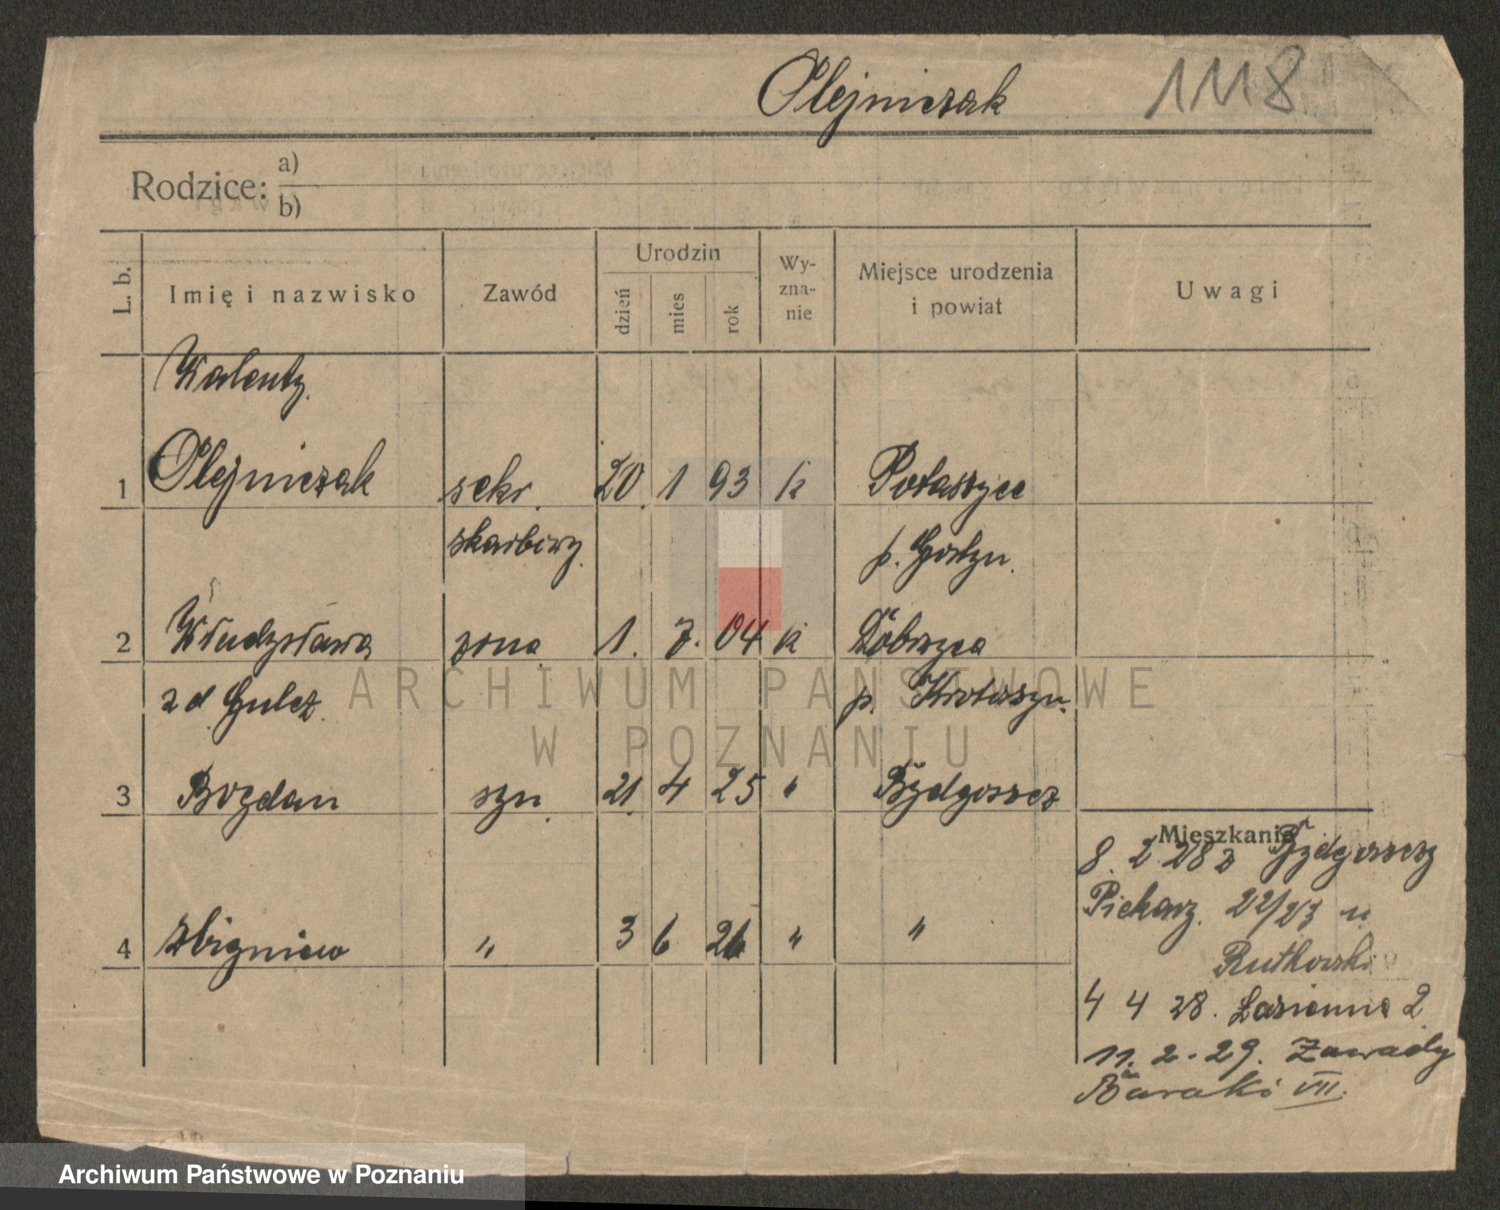 Olejniczak 1118
Rodzice: a)
b)
L. b. Imię i nazwisko Zawód Urodzin dzień mies rok Wy-zna-nie Miejsce urodzenia i powiat Uwagi
Walenty
1 Olejniczak sekr. 20 1 93 k Potaszyce
skarbowy p. Gostyn.
2 Władysława żona 1. 7. 04 k Dobrzyca
z d. Gulcz p. Krotoszyn.
3 Bogdan syn 21 4 25 " Bydgoszcz
Mieszkanie
8. 2 28 z Bydgoszczy
Piekary. 22/23 u
4 Zbigniew " 3 6 26 " "
Rutkowski
4 4 28. Łazienna 2
11. 2. 29. Zawady
Baraki VII.
ARCHIWUM PAŃSTWOWE
W POZNANIU
Archiwum Państwowe w Poznaniu